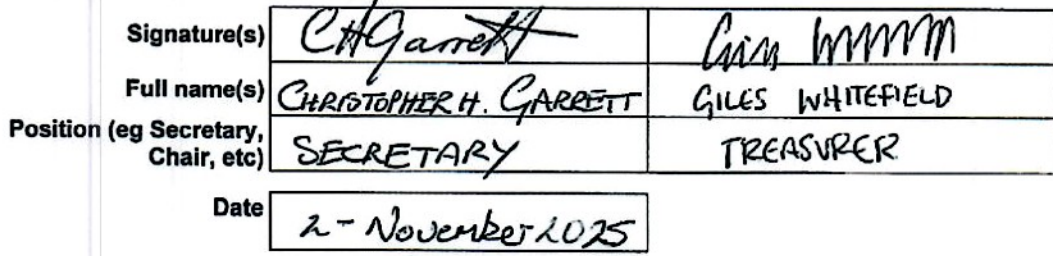 Signature(s) CHGarrett
Full name(s) CHRISTOPHER H. GARRETT GILES WHITEFIELD
Position (eg Secretary, Chair, etc) SECRETARY TREASURER
Date 2 - November 2025